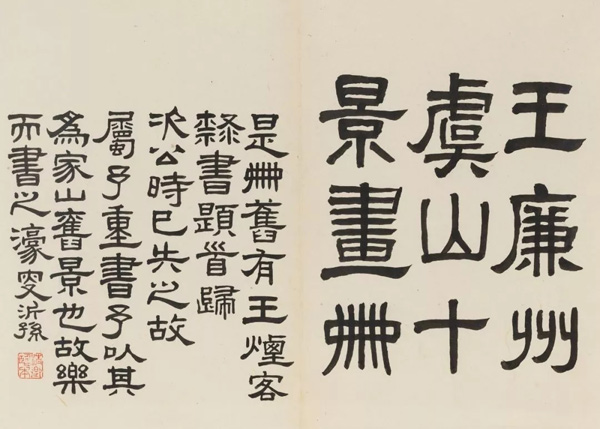 王廉州
虞山十
景畫冊
是冊舊有王煙客
隸書題首歸
次公時已失之故
屬予重書予以其
為家山舊景也故樂
而書之濠叟沂孫